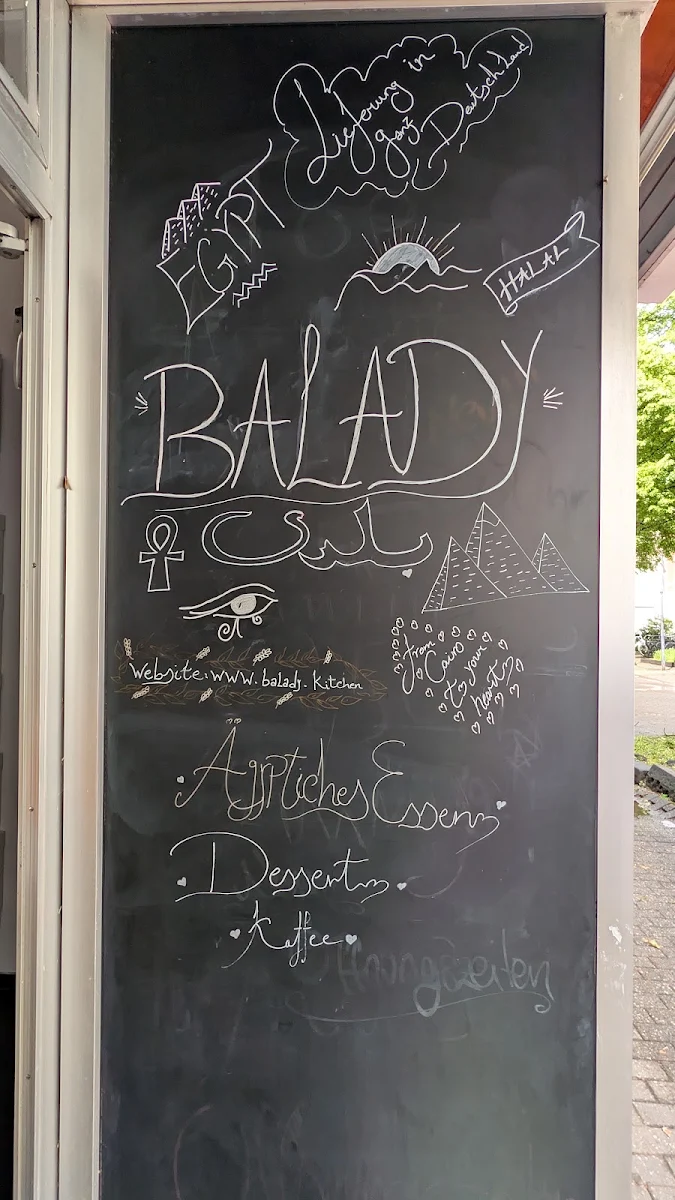 Lieferung in
ganz Deutschland
EGYPT
HALAL
BALADY
بلدي
website: www.balady.kitchen
from
Cairo
to your
heart
Ägyptiches Essen
Dessert
Kaffee
ffnungszeiten